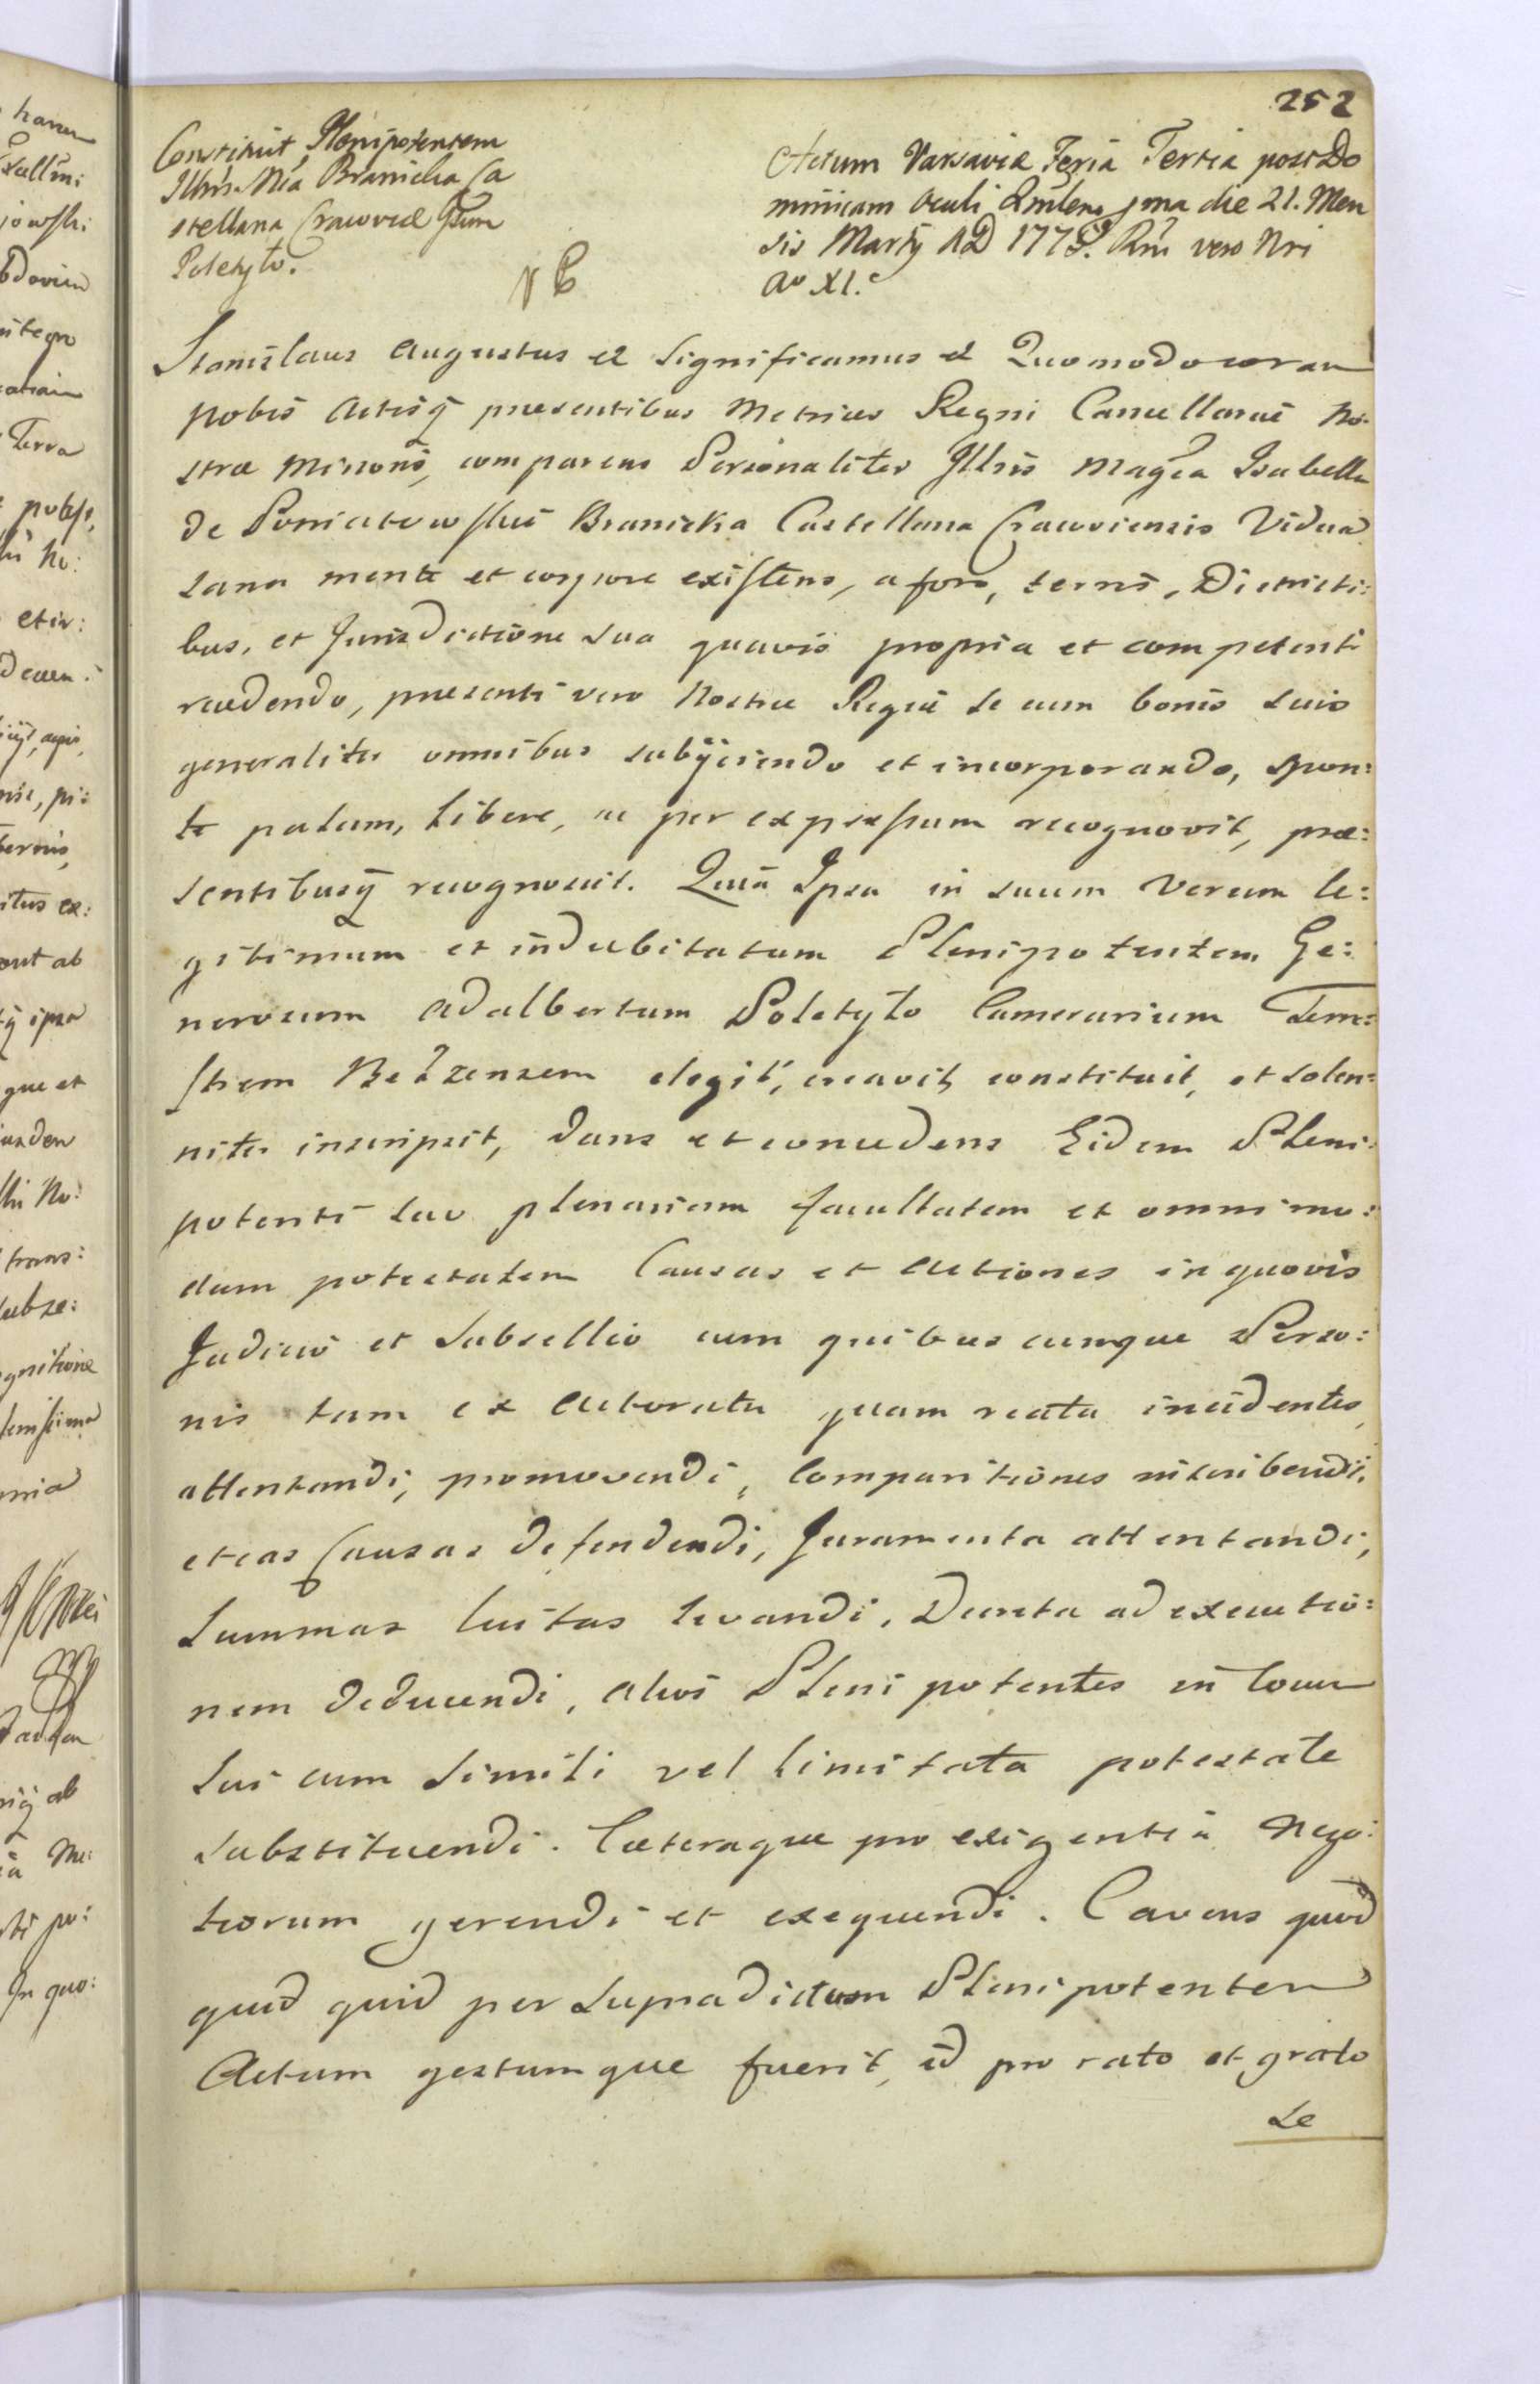 252
Constituit Plenipotentem
Illris Mca Branicka Ca
stellana Cracoviæ Gsum
Poletyło.
NB
Actum Varsaviæ Feria Tertia post Do
minicam Oculi Qudlena̅ɟma die 21. Men
sis Martij AD 1775. Rni vero Nri
Aº XI.
Stanislaus Augustus et Significamus et Quomodo coram
Nobis Actisq̃ presentibus Metrices Regni Cancellariæ No:
stræ Minoris, comparens Personaliter Illris Magca Isabella
De Poniatowskie Branicka Castellana Cracoviensis Vidua
sana mente et corpore existens, a foro, terris, Districti:
bus, et Jurisdictione sua quavis propria et competenti
recedendo, presenti vero Nostræ Regiæ se cum bonis suis
generaliter omnibus subijciendo et incorporando, spon:
te palam, libere, ac per expressum recognovit, præ:
sentibusq̃ recognoscit. Quia Ipsa in suum Verum le:
gitimum et indubitatum Plenipotentem Ge:
nerosum Adalbertum Poletyło Camerarium Terre:
strem Bełzensem elegit, creavit, constituit, et solen:
niter inscripsit, dans et concedens Eidem Pleni:
potenti suo plenariam facultatem et omnimo:
dam potestatem Causas et Actiones in quovis
Judicio et Subsellio cum quibus cunque Perso:
nis tam ex Actoratu quam reatu incidentes,
attentandi, promovendi, Comparitiones inscribendi,
et eas Causas defendendi, Juramenta attentandi,
Summas luitas levandi, Decreta ad executio:
nem deducendi, alios Plenipotentes in locum
Sui cum simili vel limitata potestate
substituendi. Cæteraque pro exigentia Nego:
tiorum gerendi et exequendi. Cavens quod
quid quid per supradictum Plenipotentem
Actum gestumque fuerit, id pro rato et grato
Se